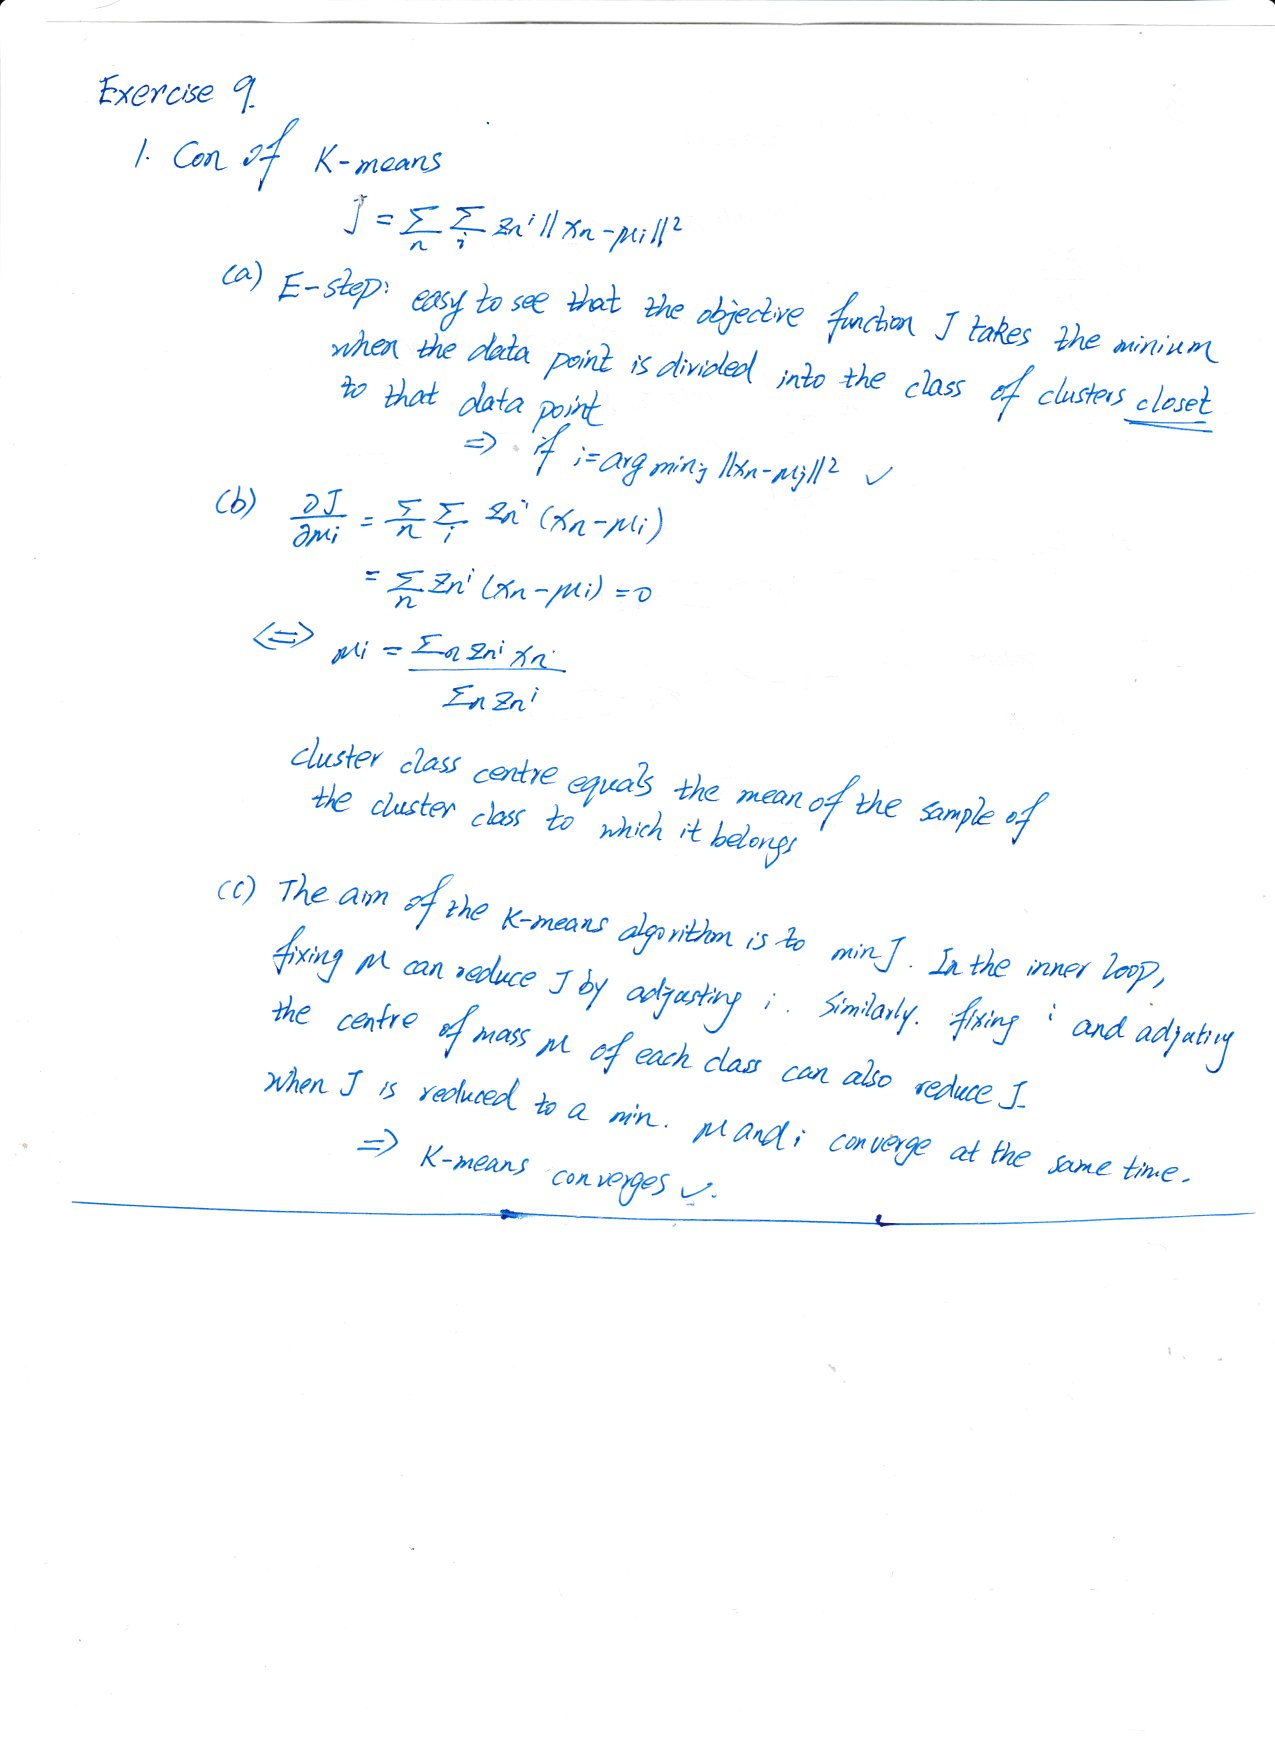 Exercise 9.
1. Con of K-means
J = Σ_n Σ_i z_n^i ||x_n - μ_i||^2
(a) E-step: easy to see that the objective function J takes the minium
when the data point is divided into the class of clusters closet
to that data point
=> if i = arg min_j ||x_n - μ_j||^2 ✓
(b) ∂J/∂μ_i = Σ_n Σ_i z_n^i (x_n - μ_i)
= Σ_n z_n^i (x_n - μ_i) = 0
<=> μ_i = Σ_n z_n^i x_n / Σ_n z_n^i
cluster class centre equals the mean of the sample of
the cluster class to which it belongs
(c) The aim of the K-means algorithm is to min J. In the inner loop,
fixing μ can reduce J by adjusting i. Similarly. fixing i and adjuting
the centre of mass μ of each class can also reduce J.
when J is reduced to a min. μ and i converge at the same time.
=> K-means converges ✓.